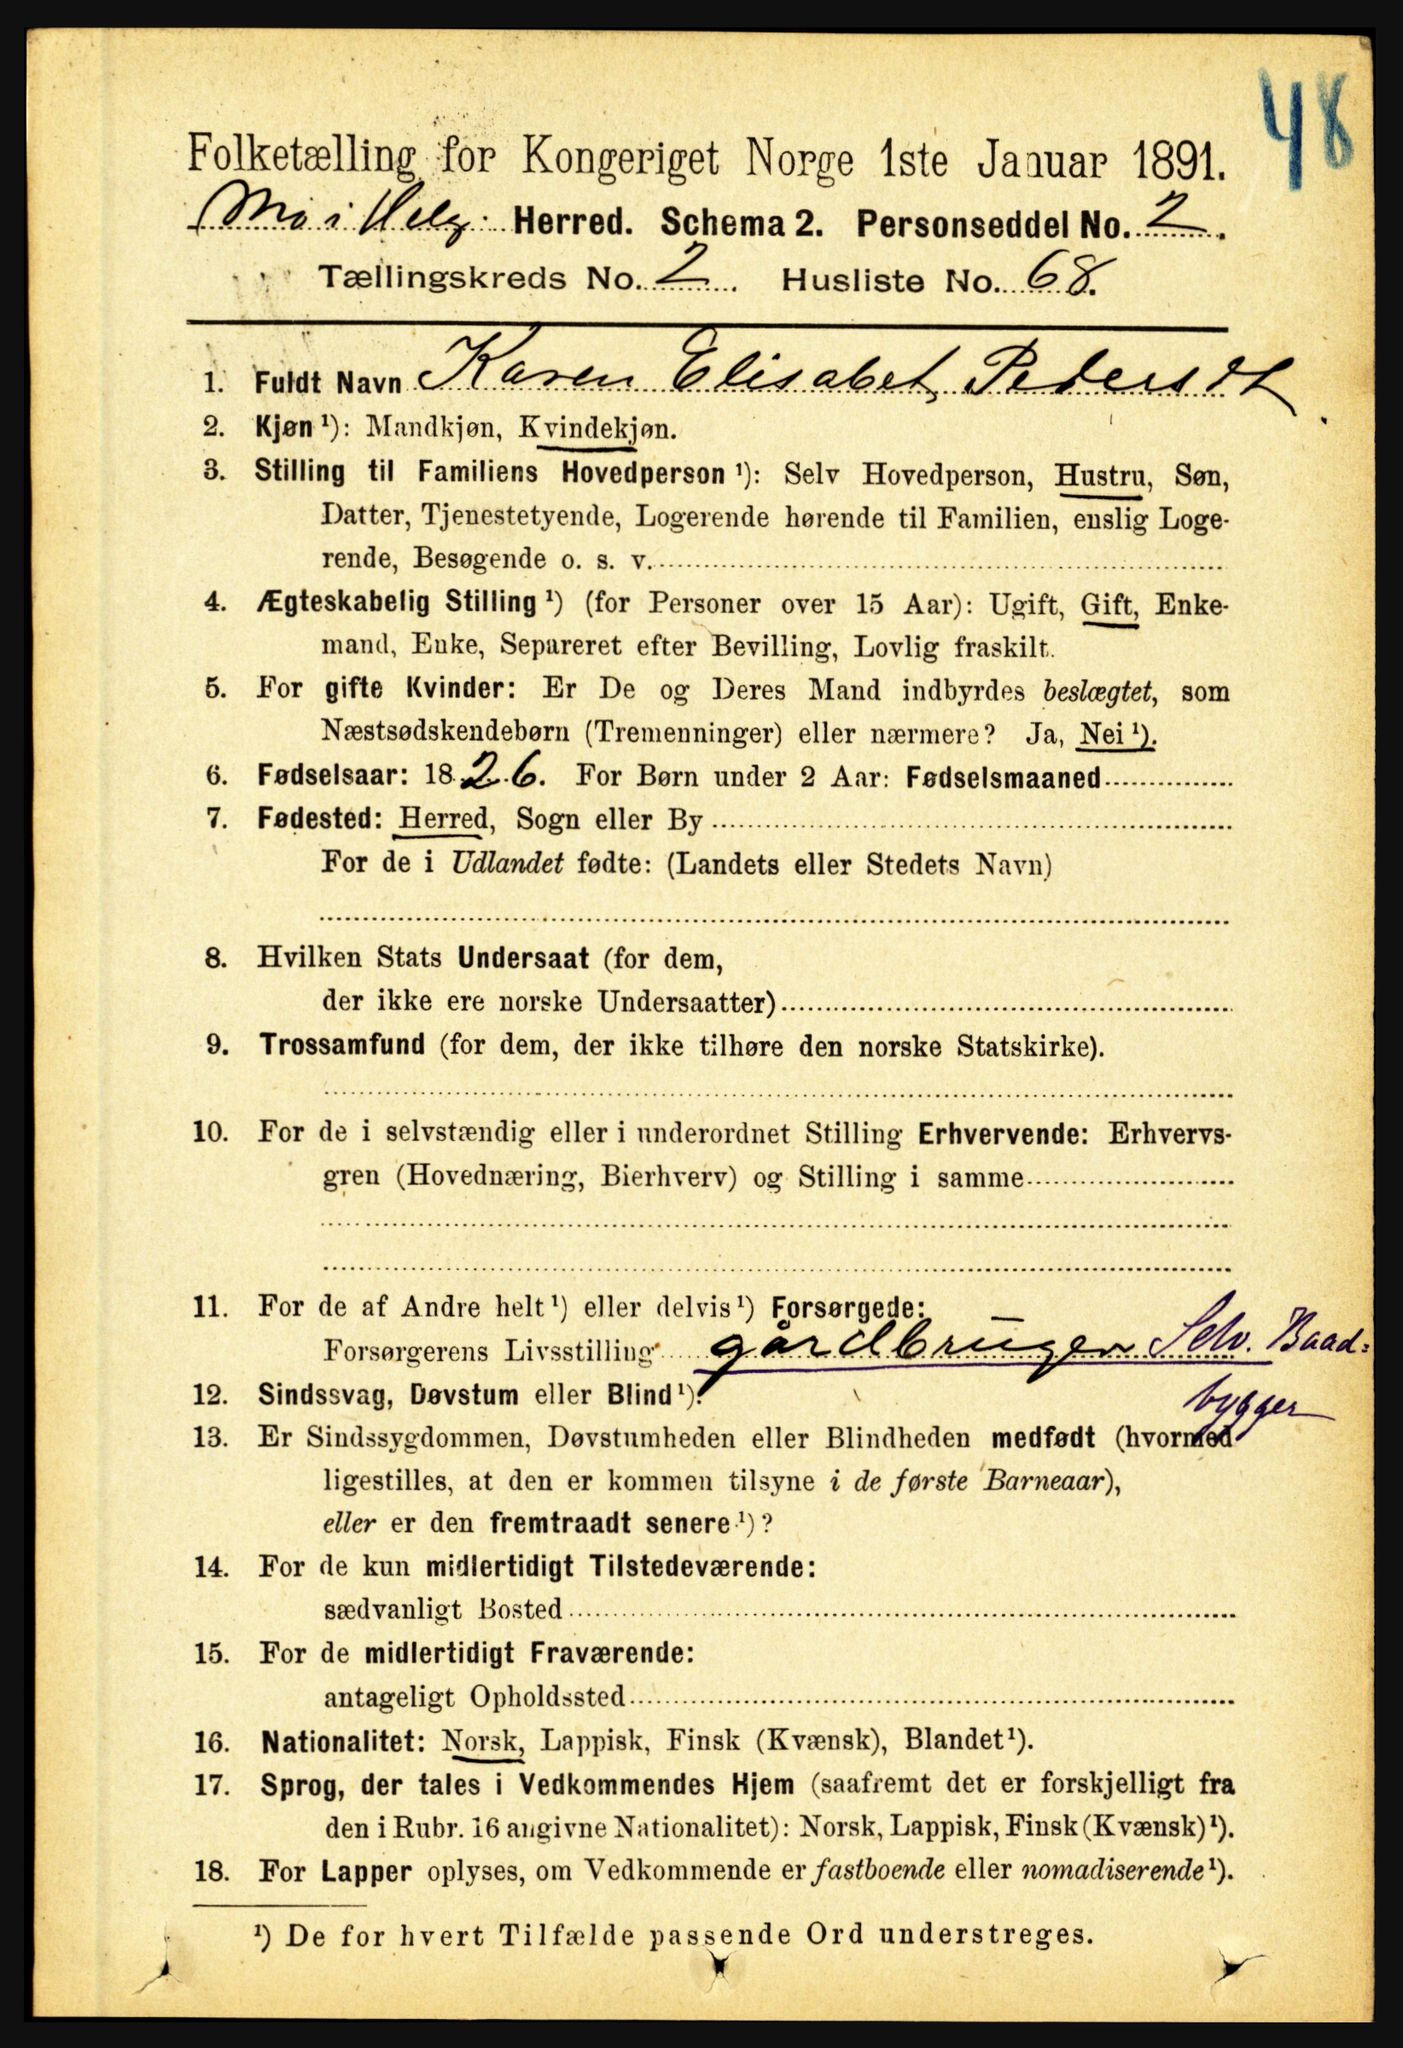 48
Folketælling for Kongeriget Norge 1ste Januar 1891.
Mo i Helg. Herred. Schema 2. Personseddel No. 2.
Tællingskreds No. 2. Husliste No. 68.
1. Fuldt Navn Karen Elisabet Pedersdt
2. Kjøn ¹): Mandkjøn, Kvindekjøn.
3. Stilling til Familiens Hovedperson ¹): Selv Hovedperson, Hustru, Søn,
Datter, Tjenestetyende, Logerende hørende til Familien, enslig Loge-
rende, Besøgende o. s. v.
4. Ægteskabelig Stilling ¹) (for Personer over 15 Aar): Ugift, Gift, Enke-
mand, Enke, Separeret efter Bevilling, Lovlig fraskilt.
5. For gifte Kvinder: Er De og Deres Mand indbyrdes beslægtet, som
Næstsødskendebørn (Tremenninger) eller nærmere? Ja, Nei ¹).
6. Fødselsaar: 1826. For Børn under 2 Aar: Fødselsmaaned
7. Fødested: Herred, Sogn eller By
For de i Udlandet fødte: (Landets eller Stedets Navn)
8. Hvilken Stats Undersaat (for dem,
der ikke ere norske Undersaatter)
9. Trossamfund (for dem, der ikke tilhøre den norske Statskirke).
10. For de i selvstændig eller i underordnet Stilling Erhvervende: Erhvervs-
gren (Hovednæring, Bierhverv) og Stilling i samme
11. For de af Andre helt ¹) eller delvis ¹) Forsørgede:
Forsørgerens Livsstilling gårdbruger Selv. Baad-
bygger
12. Sindssvag, Døvstum eller Blind ¹).
13. Er Sindssygdommen, Døvstumheden eller Blindheden medfødt (hvormed
ligestilles, at den er kommen tilsyne i de første Barneaar),
eller er den fremtraadt senere ¹)?
14. For de kun midlertidigt Tilstedeværende:
sædvanligt Bosted
15. For de midlertidigt Fraværende:
antageligt Opholdssted
16. Nationalitet: Norsk, Lappisk, Finsk (Kvænsk), Blandet ¹).
17. Sprog, der tales i Vedkommendes Hjem (saafremt det er forskjelligt fra
den i Rubr. 16 angivne Nationalitet): Norsk, Lappisk, Finsk (Kvænsk) ¹).
18. For Lapper oplyses, om Vedkommende er fastboende eller nomadiserende ¹).
¹) De for hvert Tilfælde passende Ord understreges.